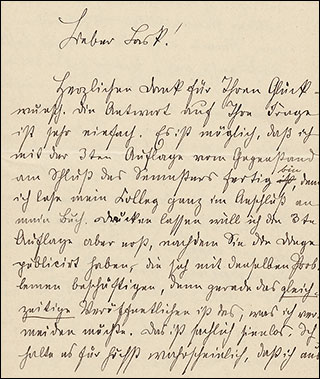 Lieber Lask!
Herzlichen Dank für Ihren Glück-
wunsch. Die Antwort auf Ihre Frage
ist sehr einfach. Es ist möglich, daß ich
mit der 3ten Auflage vom Gegenstand
am Schluß des Semesters fertig bin, denn
ich lese mein Kolleg ganz im Anschluß an
mein Buch. Drucken lassen will ich die 3te
Auflage aber erst, nachdem Sie die Dinge
publicirt haben, die sich mit denselben Prob-
lemen beschäftigen, denn gerade das gleich-
zeitige Veröffentlichen ist das, was ich ver-
meiden möchte. Das ist sachlich sinnlos. Ich
halte es für höchst wahrscheinlich, daß ich aus